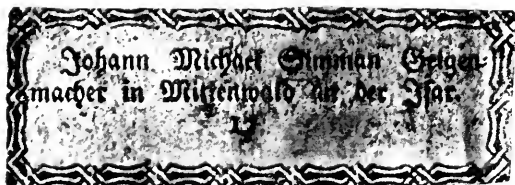 Johann Michael Simman Geigen-
macher in Mittenwald an der Isar.
17